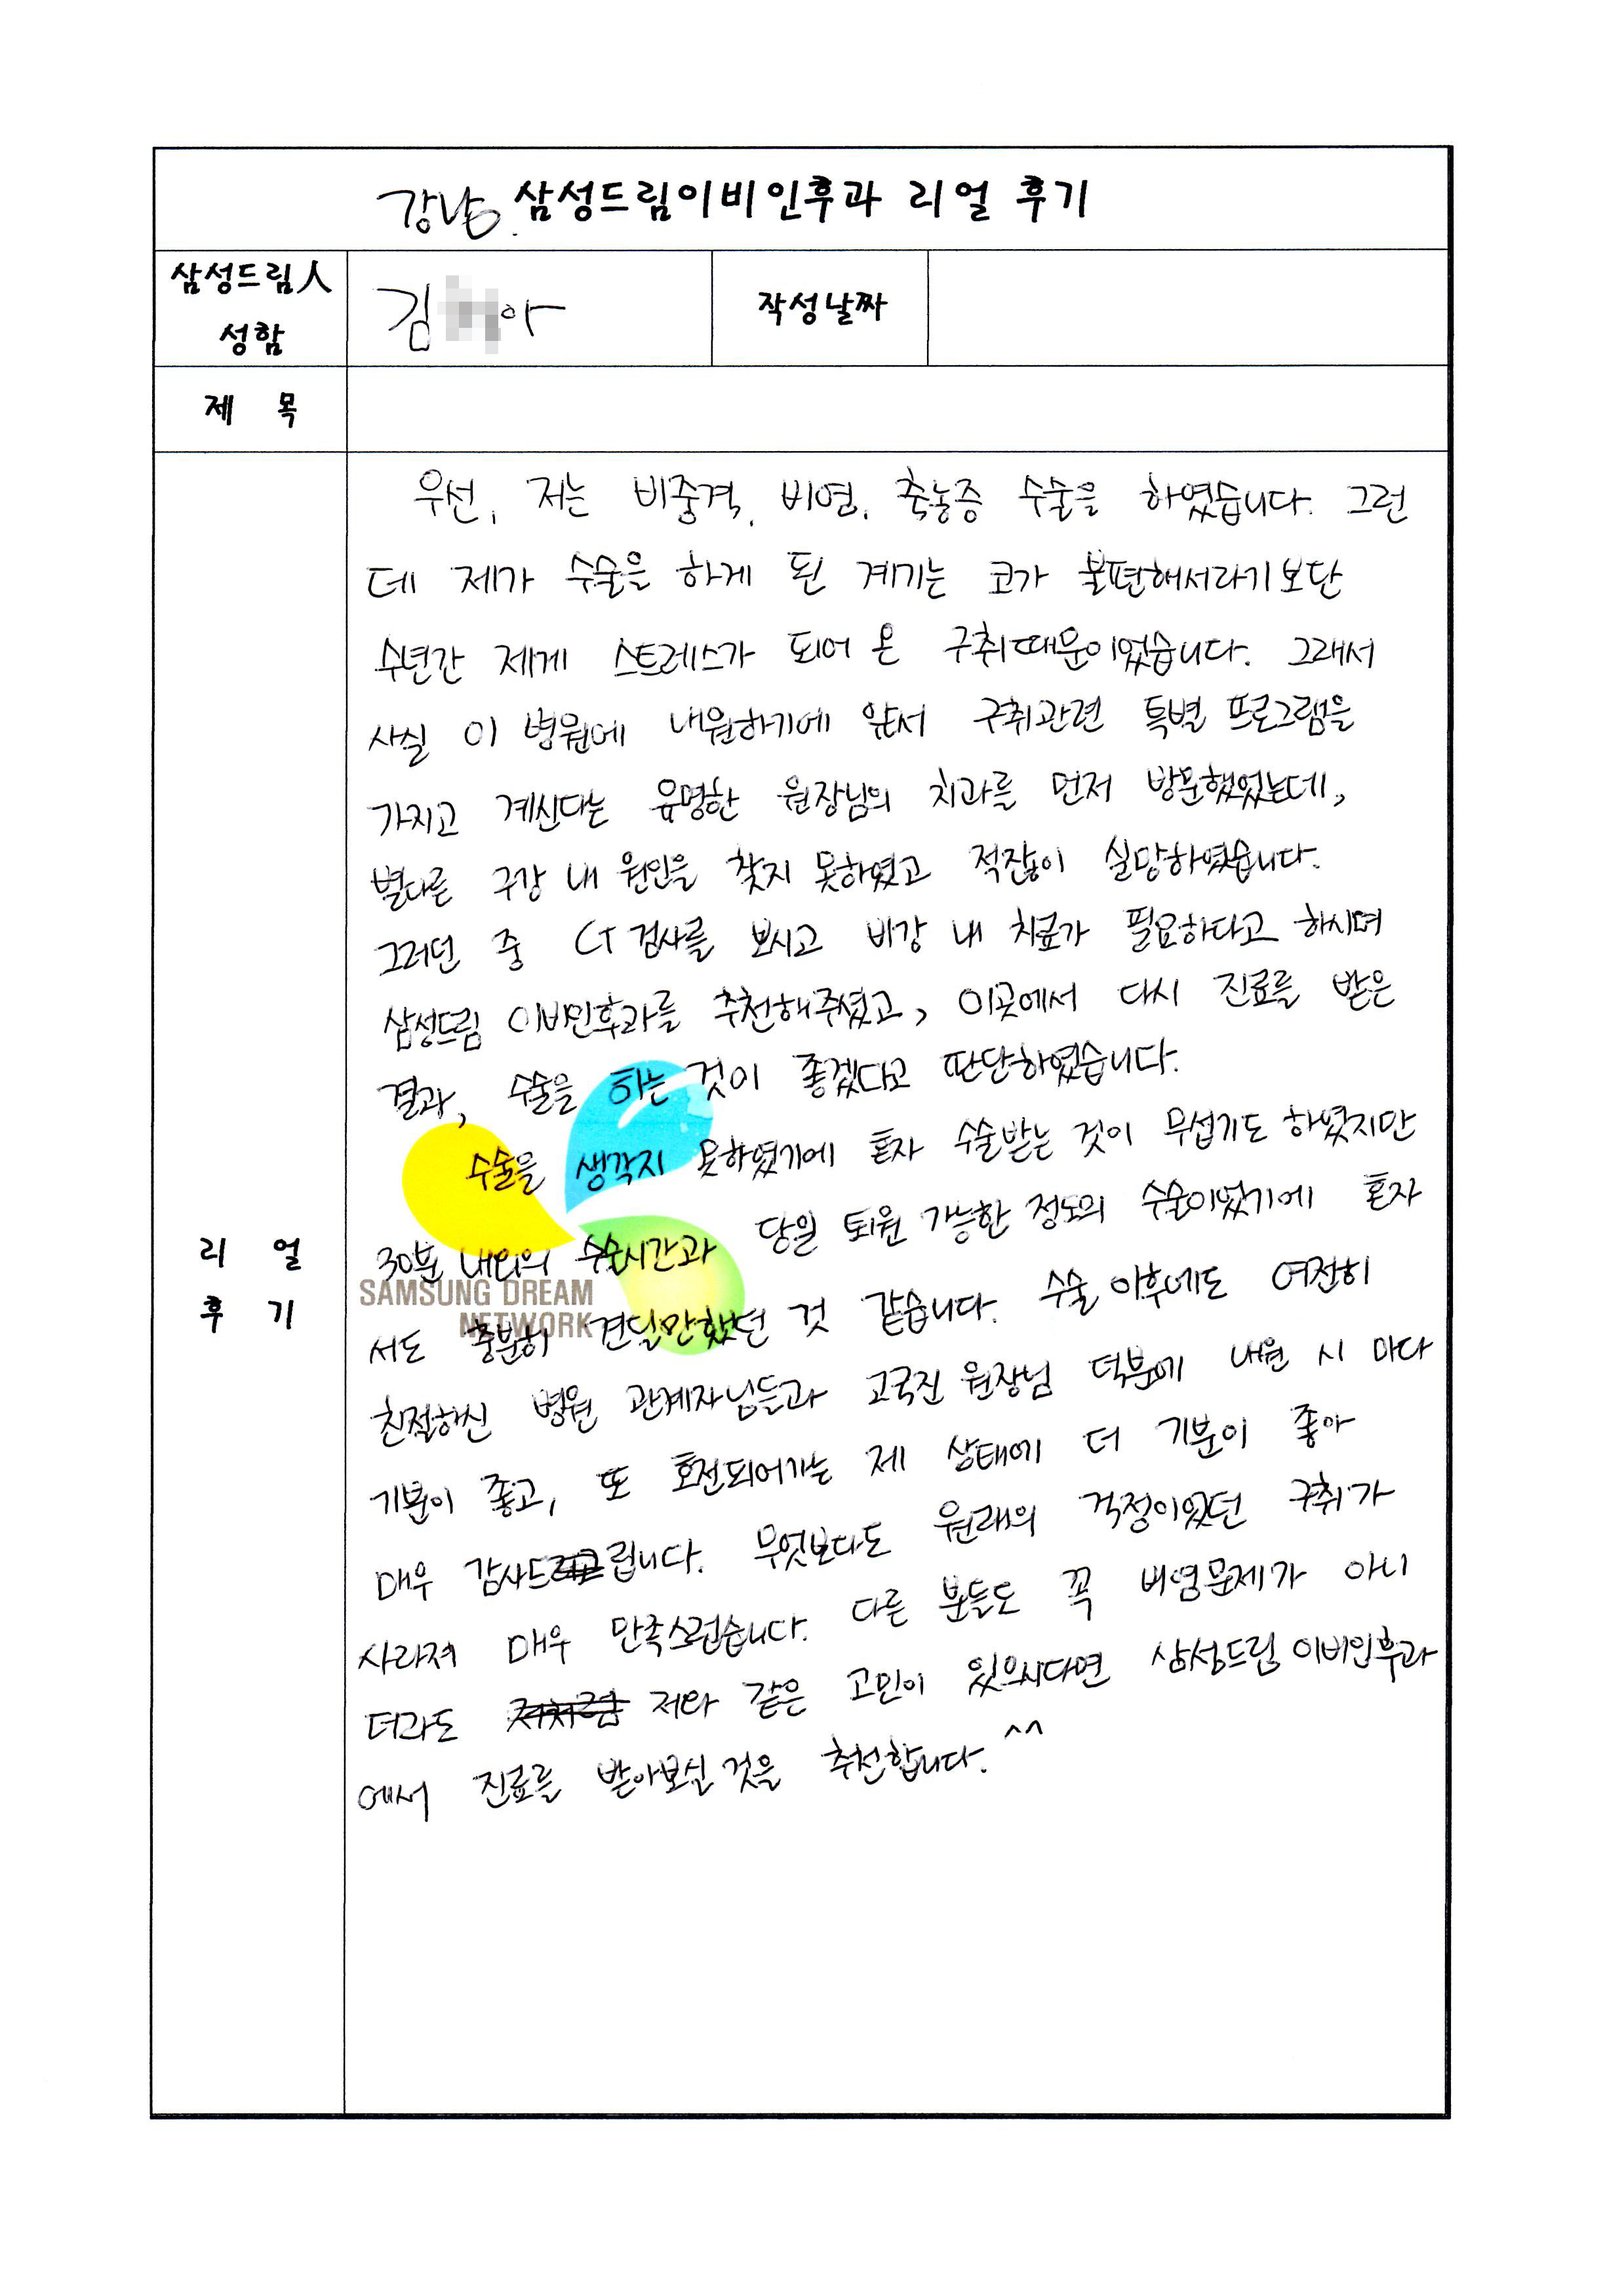 강남 삼성드림이비인후과 리얼 후기
삼성드림人
성함
김 아
작성날짜
제 목
우선, 저는 비중격, 비염, 축농증 수술을 하였습니다. 그런
데 제가 수술을 하게 된 계기는 코가 불편해서라기보단
수년간 제게 스트레스가 되어 온 구취때문이었습니다. 그래서
사실 이 병원에 내원하기에 앞서 구취관련 특별 프로그램을
가지고 계신다는 유명한 원장님의 치과를 먼저 방문했었는데,
별다른 구강 내 원인을 찾지 못하였고 적잖이 실망하였습니다.
그러던 중 CT 검사를 보시고 비강 내 치료가 필요하다고 하시며
삼성드림 이비인후과를 추천해주셨고, 이곳에서 다시 진료를 받은
결과, 수술을 하는 것이 좋겠다고 판단하였습니다.
수술을 생각지 못하였기에 혼자 수술받는 것이 무섭기도 하였지만
30분 내외의 수술시간과 당일 퇴원 가능한 정도의 수술이었기에 혼자
서도 충분히 견딜만했던 것 같습니다. 수술 이후에도 여전히
친절하신 병원 관계자님들과 고국진 원장님 덕분에 내원 시 마다
기분이 좋고, 또 호전되어가는 제 상태에 더 기분이 좋아
매우 감사드립니다. 무엇보다도 원래의 걱정이었던 구취가
사라져 매우 만족스럽습니다. 다른 분들도 꼭 비염문제가 아니
더라도 저와 같은 고민이 있으시다면 삼성드림 이비인후과
에서 진료를 받아보실 것을 추천합니다. ^^
리 얼
후 기
SAMSUNG DREAM
NETWORK